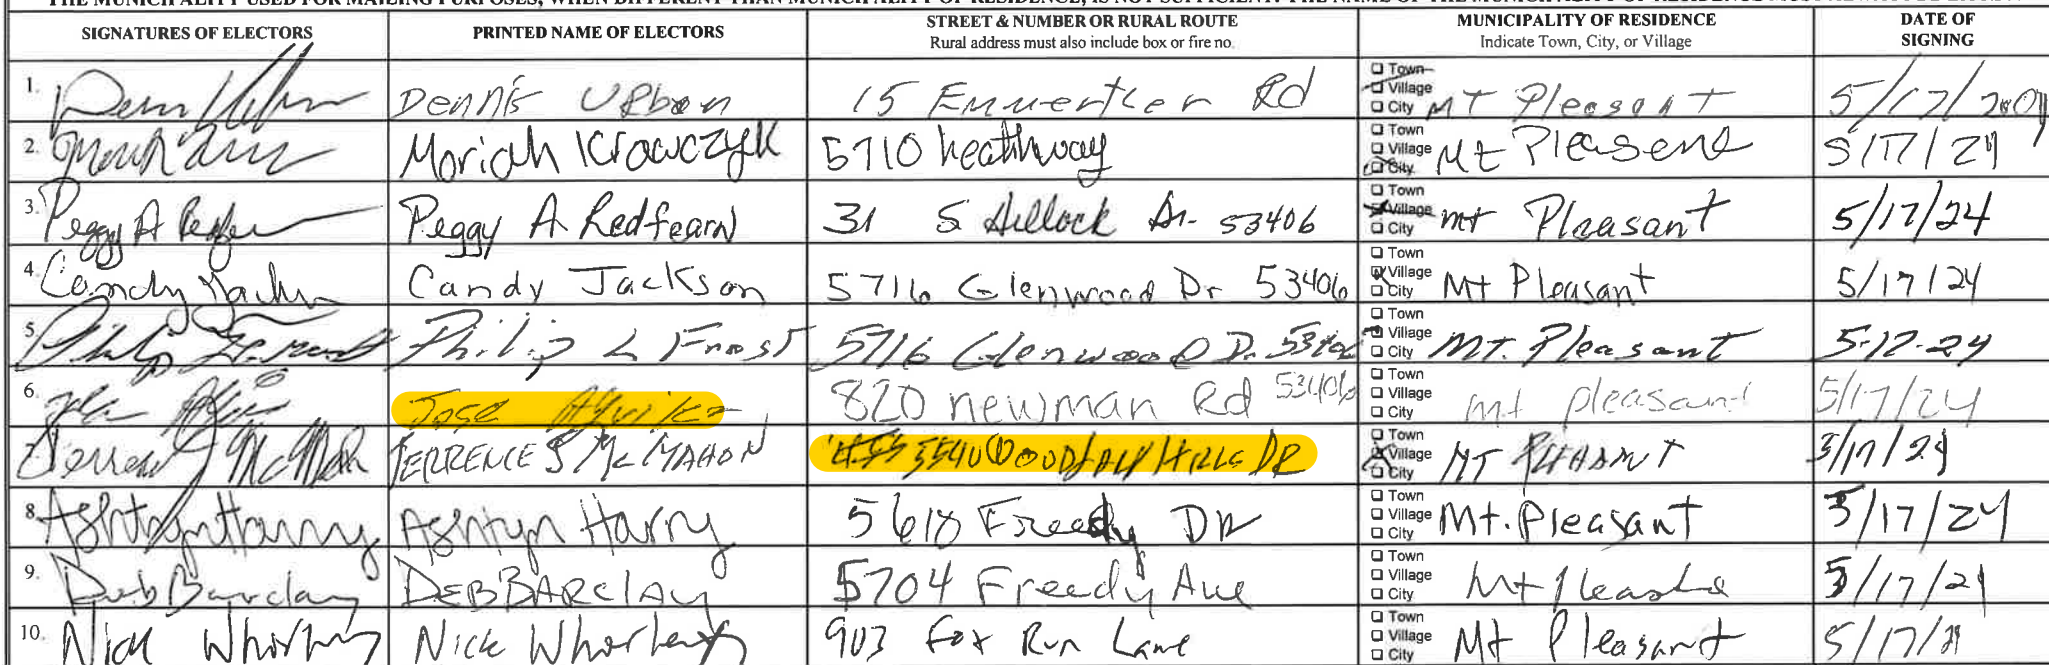 SIGNATURES OF ELECTORS PRINTED NAME OF ELECTORS STREET & NUMBER OR RURAL ROUTE Rural address must also include box or fire no. MUNICIPALITY OF RESIDENCE Indicate Town, City, or Village DATE OF SIGNING
1. Dennis Urban 15 Rd Town Village City MT Pleasant 5/17/
2. Moriah Krawczyk 5710 heathway Town Village City Mt Pleasene 5/17/24
3. Peggy A Peggy A Redfearn 31 S Hillock Dr. 53406 Town Village City mt Pleasant 5/17/24
4. Candy Candy Jackson 5716 Glenwood Dr 53406 Town Village City Mt Pleasant 5/17/24
5. Philip Philip L Frost 5716 Glenwood Dr 53406 Town Village City MT. Pleasant 5-17-24
6. Jose 820 newman Rd 53406 Town Village City mt pleasant 5/17/24
7. McMahon TERRENCE S McMAHON 5540 DR Town Village City MT 5/17/24
8. Ashtyn Harry Ashtyn Harry 5618 Freedy DR Town Village City Mt. Pleasant 5/17/24
9. Deb Barclay DEB BARClAy 5704 Freedy Ave Town Village City Mt 5/17/24
10. Nick Nick 903 Fox Run Lane Town Village City Mt Pleasant 5/17/24